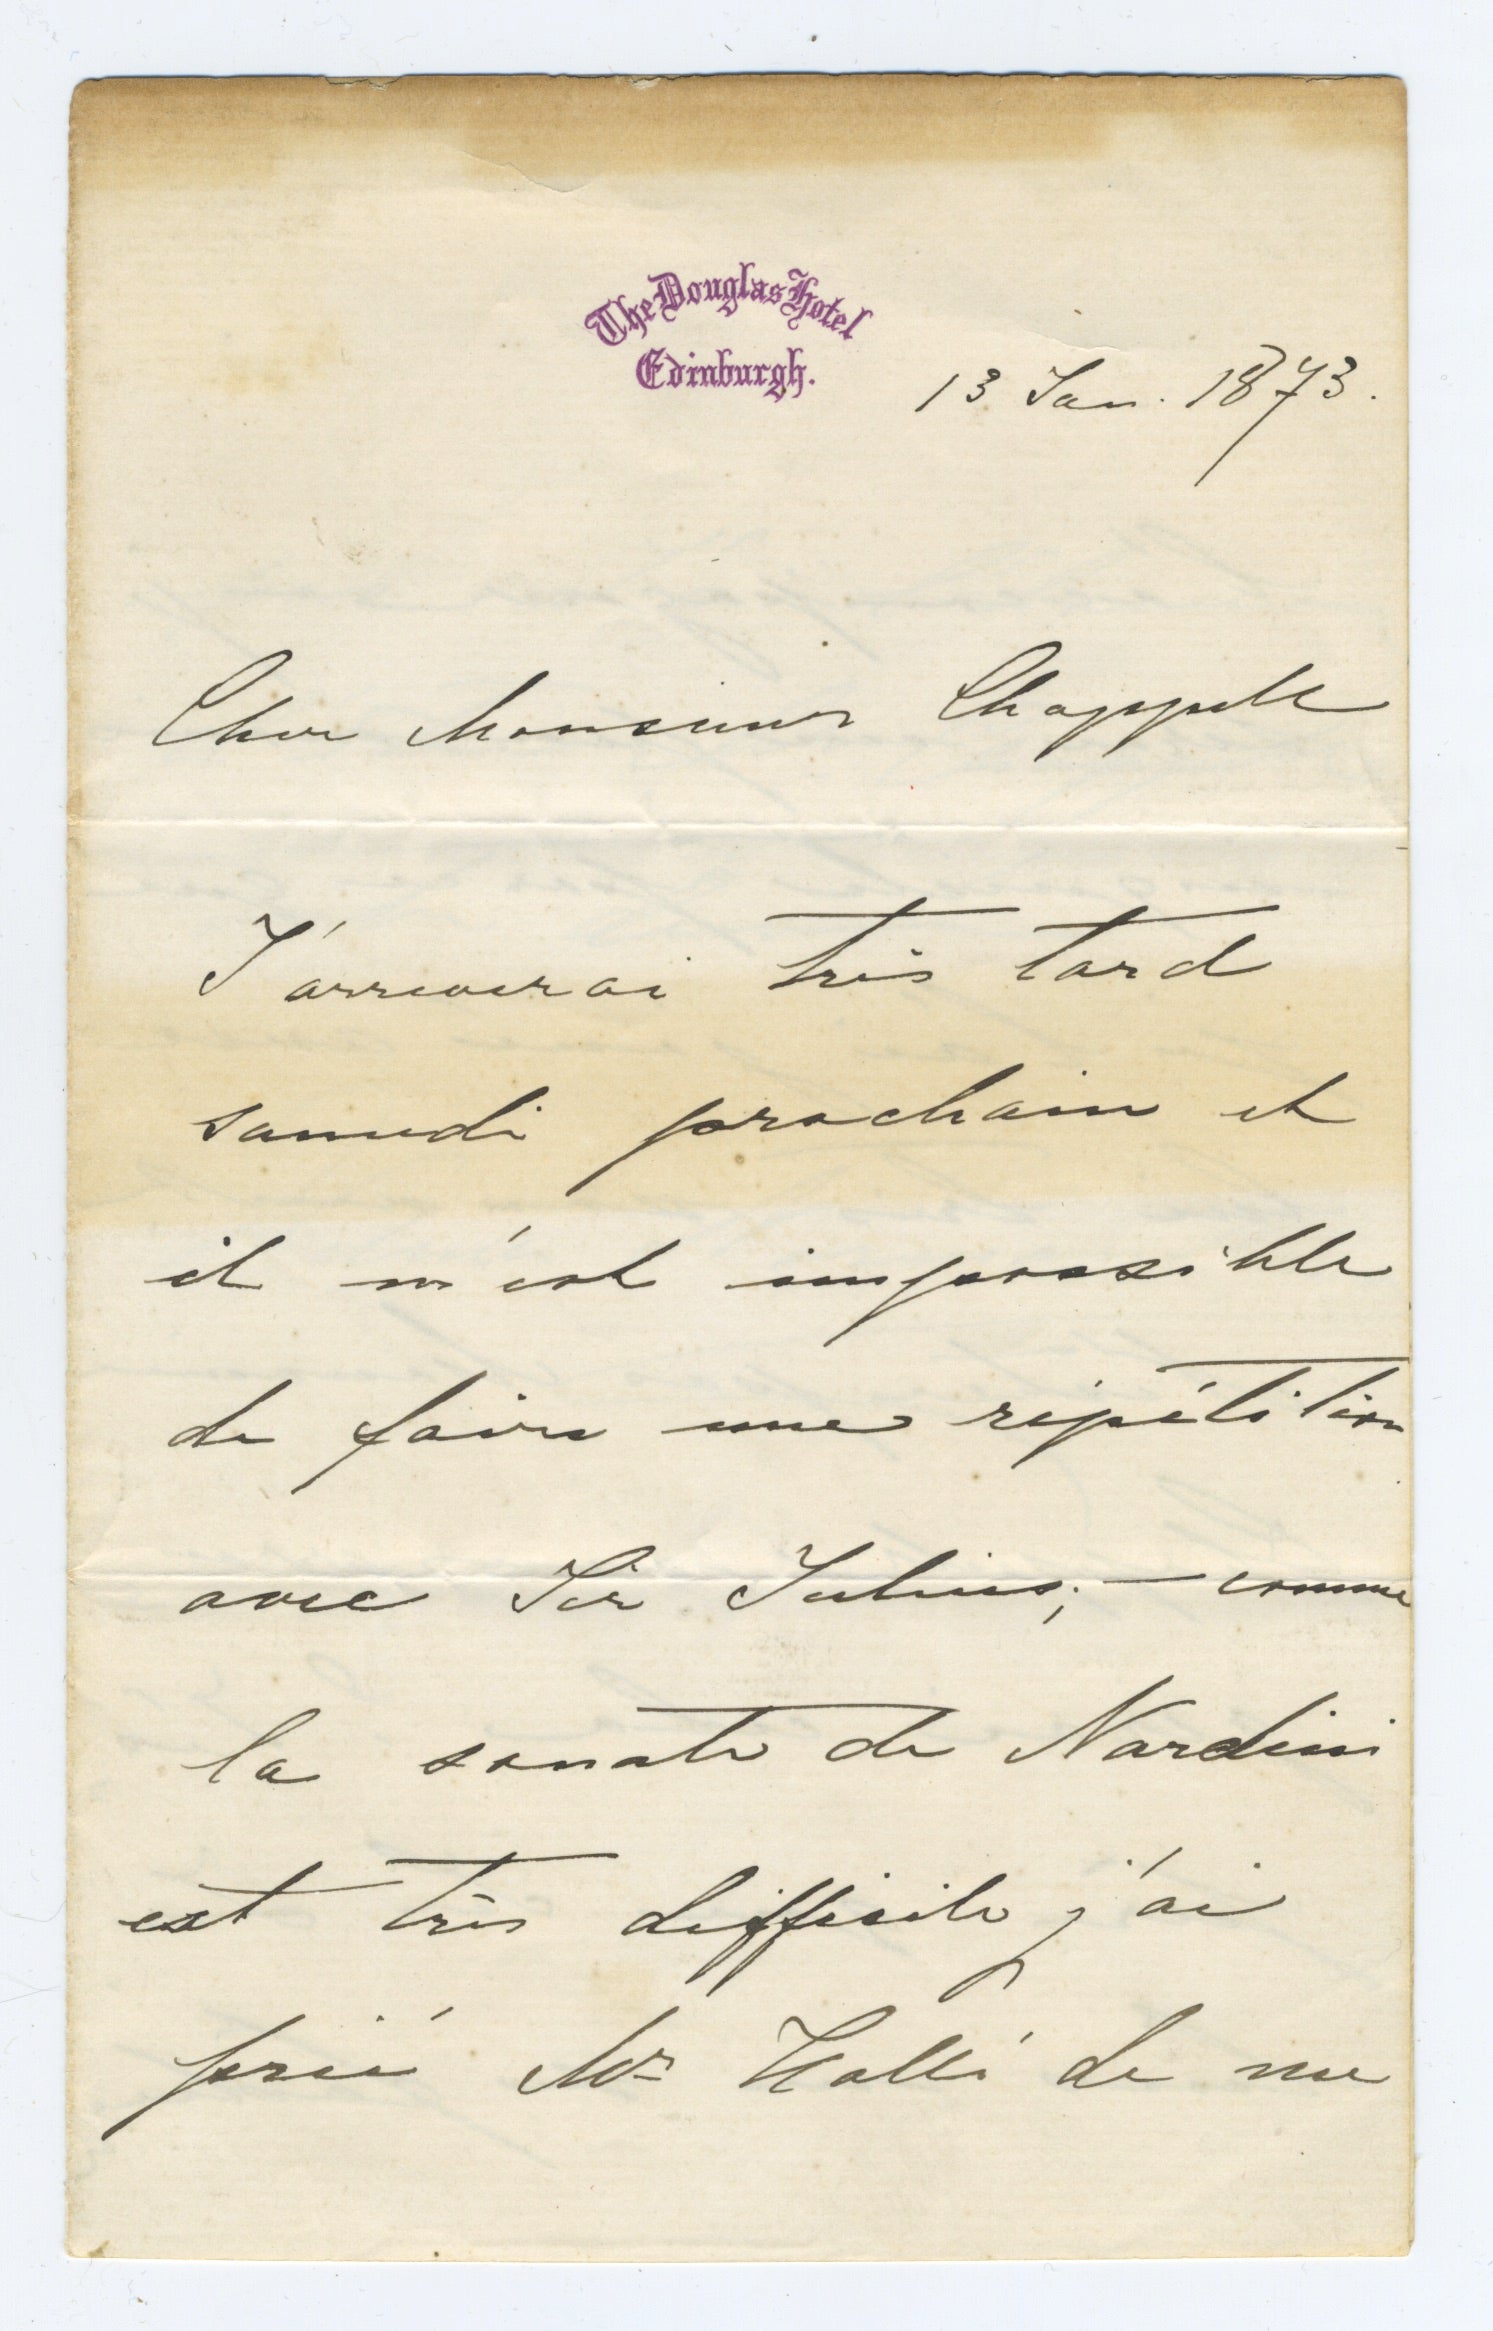 The Douglas Hotel
Edinburgh.
13 Jan. 1873.
Cher Monsieur Chappell
J'arriverai très tard
samedi prochain et
il m'est impossible
de faire une répétition
avec Sir Julius; — comme
la sonate de Nardini
est très difficile j'ai
prié Mr Hallé de me